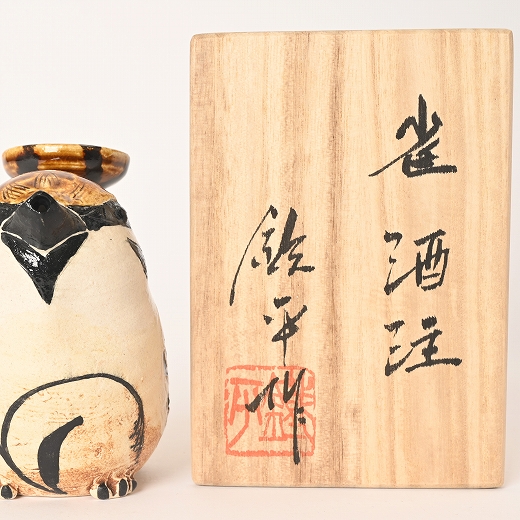 雀酒注
鉄平作